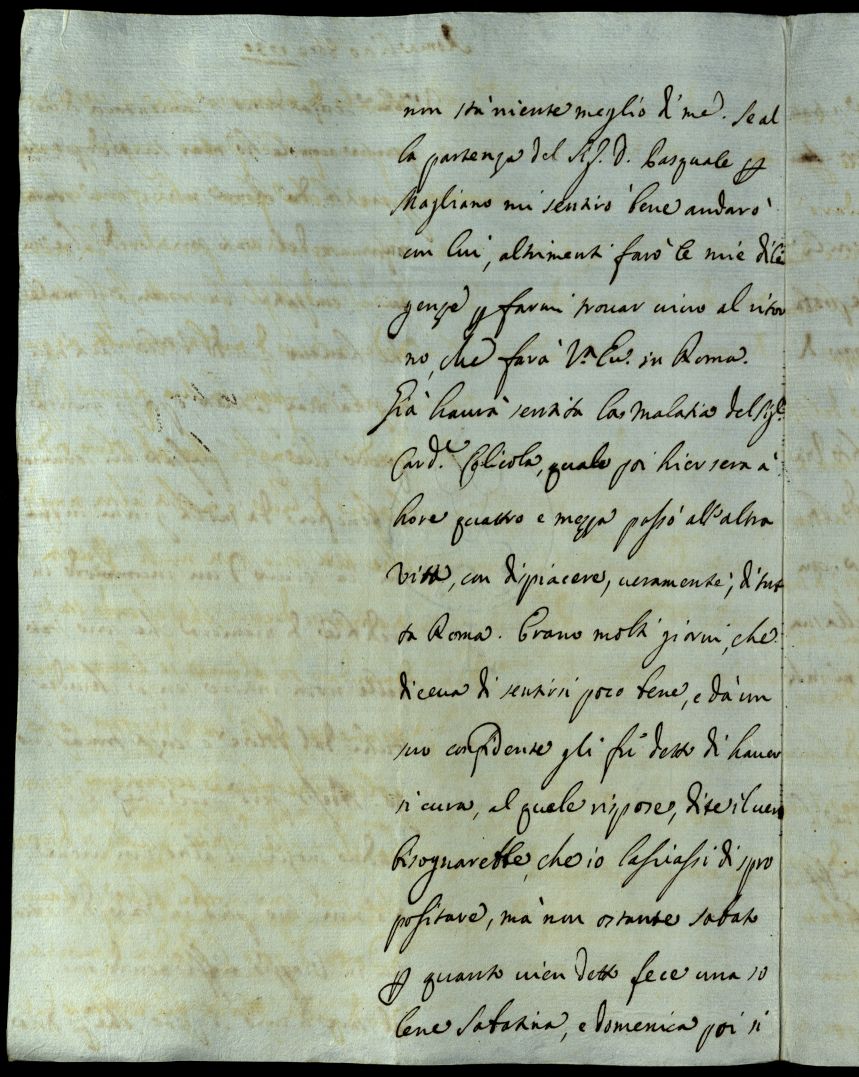 non stà niente meglio di me. Se al
la partenza del Sig. D. Pasquale p
Magliano mi sentirò bene andarò
con lui, altrimenti farò le mie dili
genze p farmi trouar vicino al ritor
no, che farà V.ra Ecc. in Roma.
Già haurà sentita la malatia del Sig.r
Card.l Colicola, quale poi hiersera à
hore quattro e mezza passò all'altra
Vita, con dispiacere, ueramente, di tut
ta Roma. Erano molti giorni, che
diceua di sentirsi poco bene, e da un
suo confidente gli fù detto di hauer
si cura, al quale rispose, dite il uero
bisognarebbe, che io lasciassi di spro
positare, mà non ostante sabato
p quanto uien detto fece una so
lene Sabatina, e domenica poi si